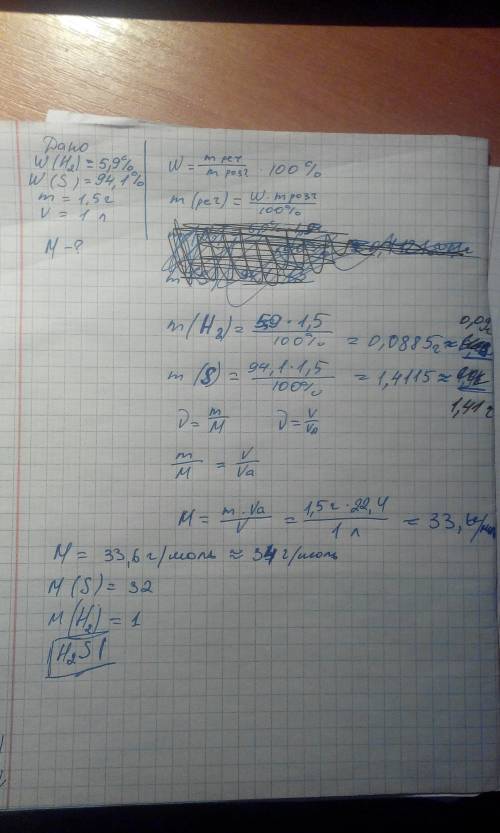 Дано
W(H₂) = 5,9%
W(S) = 94,1%
m = 1,5 г
V = 1 л
M - ?
W = m реч / m розч · 100%
m(реч) = W · m розч / 100%
m(H₂) = 5,9 · 1,5 / 100% = 0,0885 г ≈ 0,09
m(S) = 94,1 · 1,5 / 100% = 1,4115 ≈
1,41 г
ν = m / M ν = V / Va
m / M = V / Va
M = m · Va / V = 1,5 г · 22,4 / 1 л ≈ 33,
M = 33,6 г/моль ≈ 34 г/моль
M(S) = 32
M(H₂) = 1
H₂S